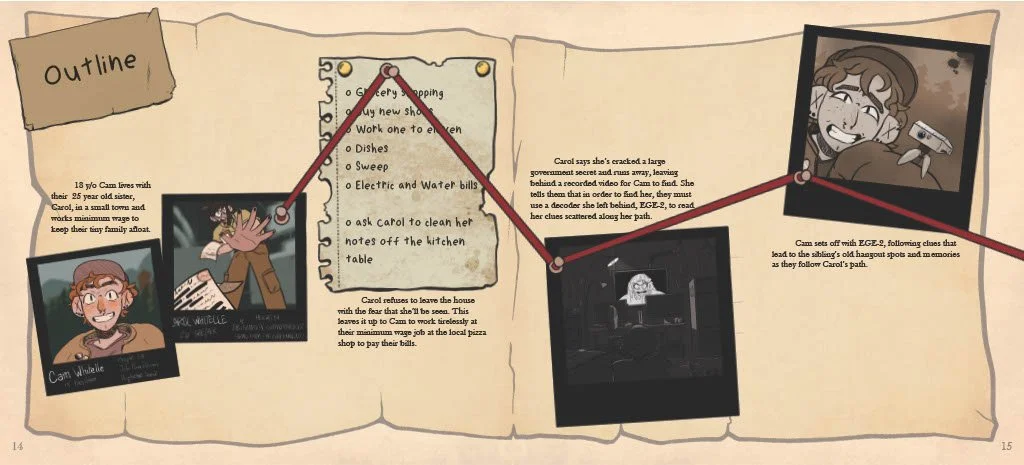 Outline
18 y/o Cam lives with
their 25 year old sister,
Carol, in a small town and
works minimum wage to
keep their tiny family afloat.
Cam Whitelle
WHITELLE
o Grocery shopping
o Buy new shoes
o Work one to eleven
o Dishes
o Sweep
o Electric and Water bills
o ask Carol to clean her
notes off the kitchen
table
Carol refuses to leave the house
with the fear that she'll be seen. This
leaves it up to Cam to work tirelessly at
their minimum wage job at the local pizza
shop to pay their bills.
Carol says she's cracked a large
government secret and runs away, leaving
behind a recorded video for Cam to find. She
tells them that in order to find her, they must
use a decoder she left behind, EGE-2, to read
her clues scattered along her path.
Cam sets off with EGE-2, following clues that
lead to the sibling's old hangout spots and memories
as they follow Carol's path.
14
15